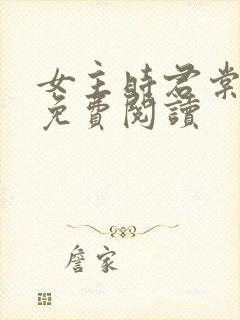 女主時君棠
免費閱讀
詹家